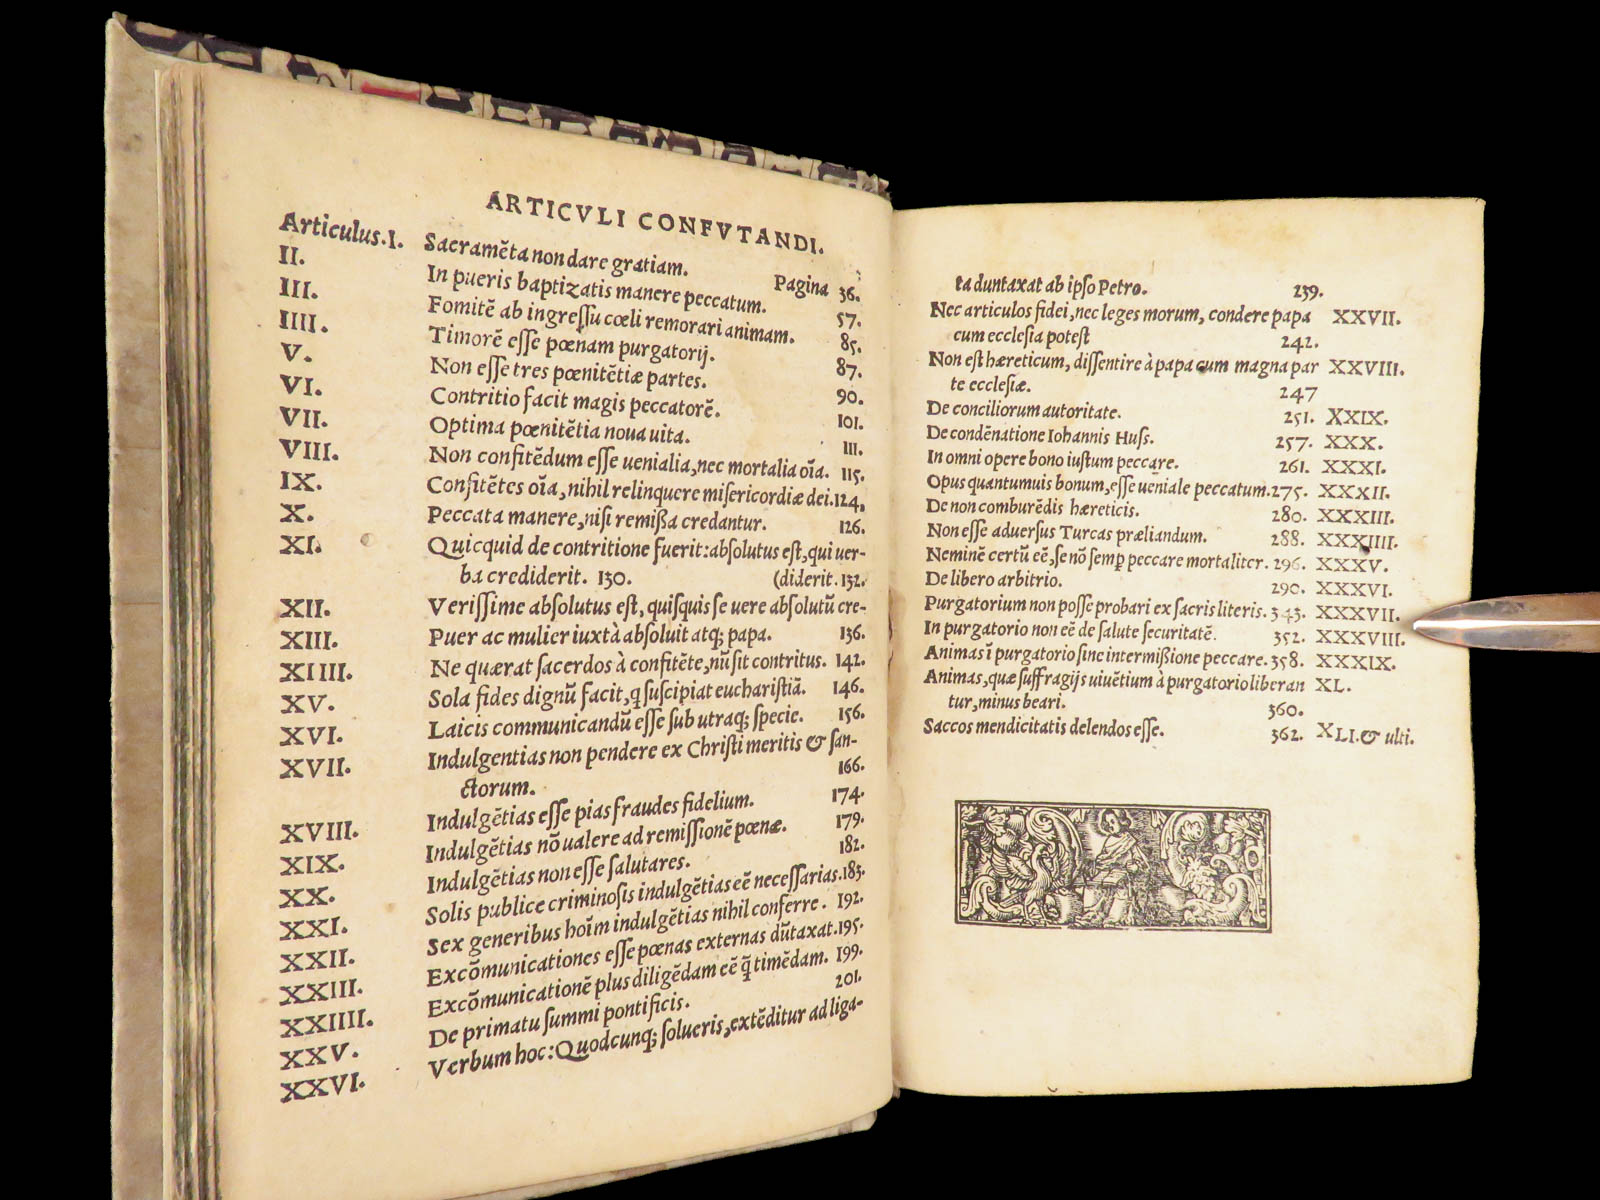 ARTICVLI CONFVTANDI.
Articulus.I. Sacramēta non dare gratiam. Pagina 36.
II. In pueris baptizatis manere peccatum. 57.
III. Fomitē ab ingreſſu cœli remorari animam. 85.
IIII. Timorē eſſe pœnam purgatorij. 87.
V. Non eſſe tres pœnitētiæ partes. 90.
VI. Contritio facit magis peccatorē. 101.
VII. Optima pœnitētia noua uita. 111.
VIII. Non confitēdum eſſe uenialia, nec mortalia oīa. 115.
IX. Confitētes oīa, nihil relinquere miſericordiæ dei. 124.
X. Peccata manere, niſi remiſſa credantur. 126.
XI. Quicquid de contritione fuerit: abſolutus eſt, qui uer-
ba crediderit. 130. (diderit. 132.
XII. Veriſſime abſolutus eſt, quiſquis ſe uere abſolutū cre-
XIII. Puer ac mulier iuxtà abſoluit atq; papa. 136.
XIIII. Ne quærat ſacerdos à confitēte, nū ſit contritus. 142.
XV. Sola fides dignū facit, q̄ ſuſcipiat euchariſtiā. 146.
XVI. Laicis communicandū eſſe ſub utraq; ſpecie. 156.
XVII. Indulgentias non pendere ex Chriſti meritis & ſan-
ctorum. 166.
XVIII. Indulgētias eſſe pias fraudes fidelium. 174.
XIX. Indulgētias nō ualere ad remiſſionē pœnæ. 179.
XX. Indulgētias non eſſe ſalutares. 182.
XXI. Solis publice criminoſis indulgētias eē neceſſarias. 183.
XXII. Sex generibus hoīm indulgētias nihil conferre. 192.
XXIII. Excōmunicationes eſſe pœnas externas dūtaxat. 195.
XXIIII. Excōmunicationē plus diligēdam eē q̄ timēdam. 199.
XXV. De primatu ſummi pontificis. 201.
XXVI. Verbum hoc: Quodcunq; ſolueris, extēditur ad liga-
ta duntaxat ab ipſo Petro. 239.
Nec articulos fidei, nec leges morum, condere papa XXVII.
cum eccleſia poteſt 242.
Non eſt hæreticum, diſſentire à papa cum magna par XXVIII.
te eccleſiæ. 247
De conciliorum autoritate. 251. XXIX.
De condēnatione Iohannis Huſſ. 257. XXX.
In omni opere bono iuſtum peccare. 261. XXXI.
Opus quantumuis bonum, eſſe ueniale peccatum. 275. XXXII.
De non comburēdis hæreticis. 280. XXXIII.
Non eſſe aduerſus Turcas præliandum. 288. XXXIIII.
Neminē certū eē, ſe nō ſemp̄ peccare mortaliter. 296. XXXV.
De libero arbitrio. 290. XXXVI.
Purgatorium non poſſe probari ex ſacris literis. 343. XXXVII.
In purgatorio non eē de ſalute ſecuritatē. 352. XXXVIII.
Animas ī purgatorio ſine intermiſſione peccare. 358. XXXIX.
Animas, quæ ſuffragijs uiuētium à purgatorio liberan XL.
tur, minus beari. 360.
Saccos mendicitatis delendos eſſe. 362. XLI. & ulti.